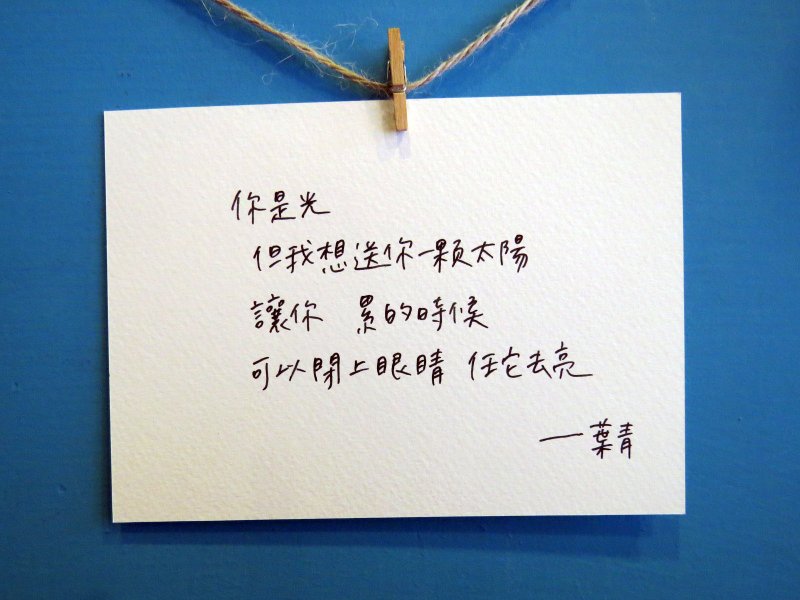 你是光
但我想送你一顆太陽
讓你 累的時候
可以閉上眼睛 任它去亮
—葉青